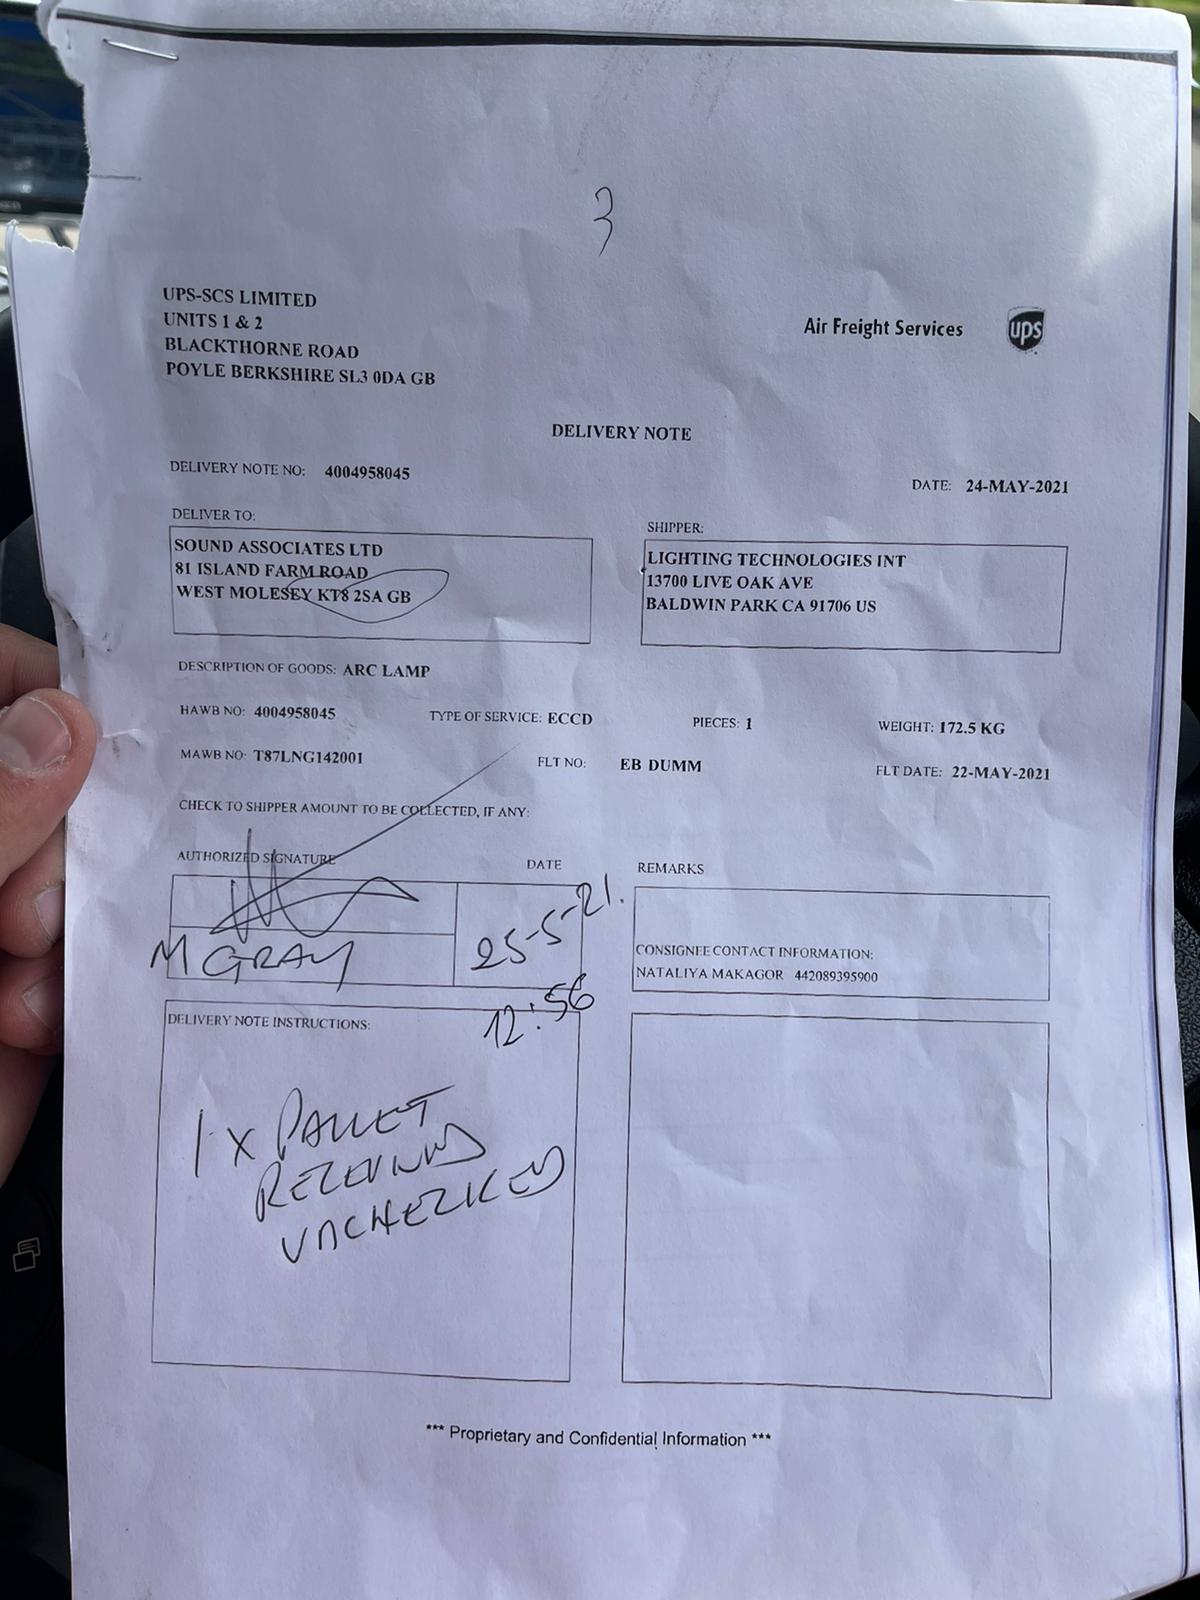 3
UPS-SCS LIMITED
UNITS 1 & 2
BLACKTHORNE ROAD
POYLE BERKSHIRE SL3 0DA GB
Air Freight Services
ups
DELIVERY NOTE
DELIVERY NOTE NO: 4004958045
DATE: 24-MAY-2021
DELIVER TO:
SOUND ASSOCIATES LTD
81 ISLAND FARM ROAD
WEST MOLESEY KT8 2SA GB
SHIPPER:
LIGHTING TECHNOLOGIES INT
13700 LIVE OAK AVE
BALDWIN PARK CA 91706 US
DESCRIPTION OF GOODS: ARC LAMP
HAWB NO: 4004958045 TYPE OF SERVICE: ECCD PIECES: 1 WEIGHT: 172.5 KG
MAWB NO: T87LNG142001 FLT NO: EB DUMM FLT DATE: 22-MAY-2021
CHECK TO SHIPPER AMOUNT TO BE COLLECTED, IF ANY:
AUTHORIZED SIGNATURE DATE
M GRAY
25-5-21.
12:56
REMARKS
CONSIGNEE CONTACT INFORMATION:
NATALIYA MAKAGOR 442089395900
DELIVERY NOTE INSTRUCTIONS:
1 x PALLET
UNCHECKED
*** Proprietary and Confidential Information ***